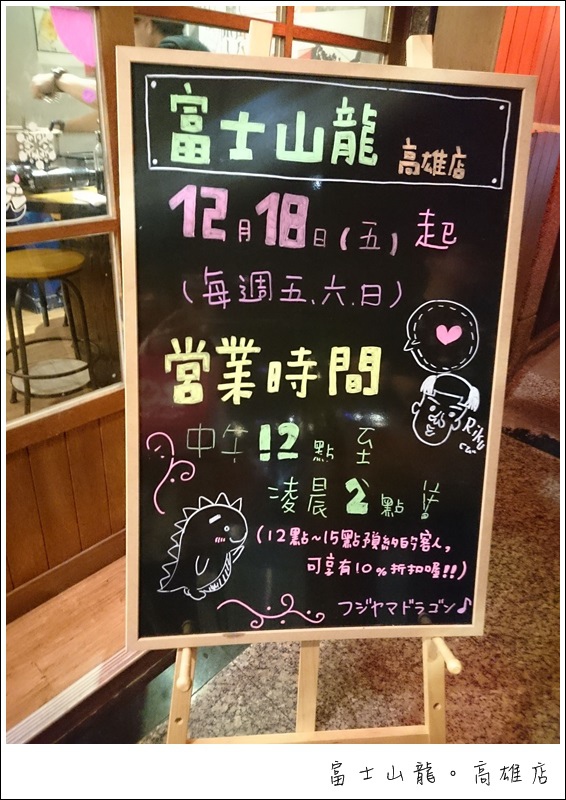 富士山龍 高雄店
12月18日(五)起
(每週五、六、日)
営業時間
中午12點 至
凌晨2點!!
(12點~15點預約的客人,
可享有10%折扣喔!!)
フジヤマドラゴン♪
Riku
富士山龍。高雄店